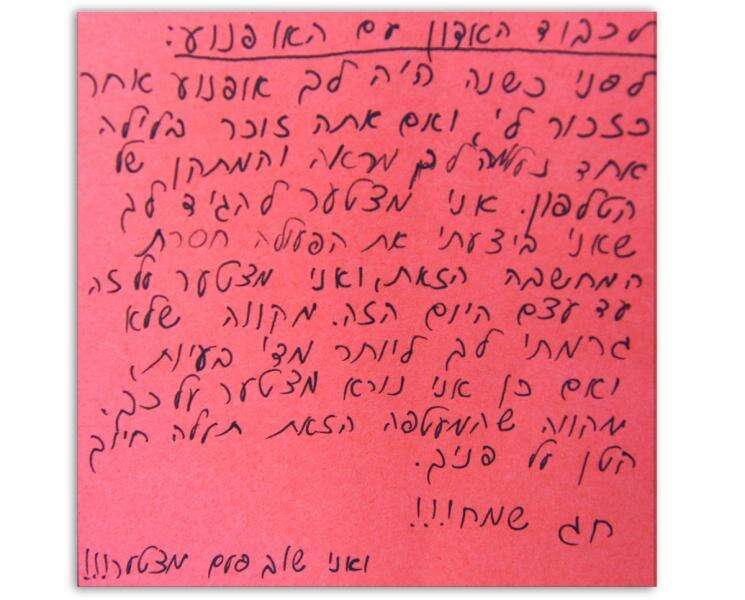 לכבוד האדון עם האופנוע:
לפני כשנה היה לך אופנוע אחר
כזכור לי, ואם אתה זוכר בלילה
אחד נלקחה לך מראה והמתקן של
הטלפון. אני מצטער להגיד לך
שאני ביצעתי את הפעולה חסרת
המחשבה הזאת, ואני מצטער על זה
עד עצם היום הזה. מקווה שלא
גרמתי לך ליותר מדי בעיות,
ואם כן אני נורא מצטער על כך.
מקווה שהמעטפה הזאת תעלה חיוך
קטן על פניך.
חג שמח!!!
ואני שוב פעם מצטער!!!